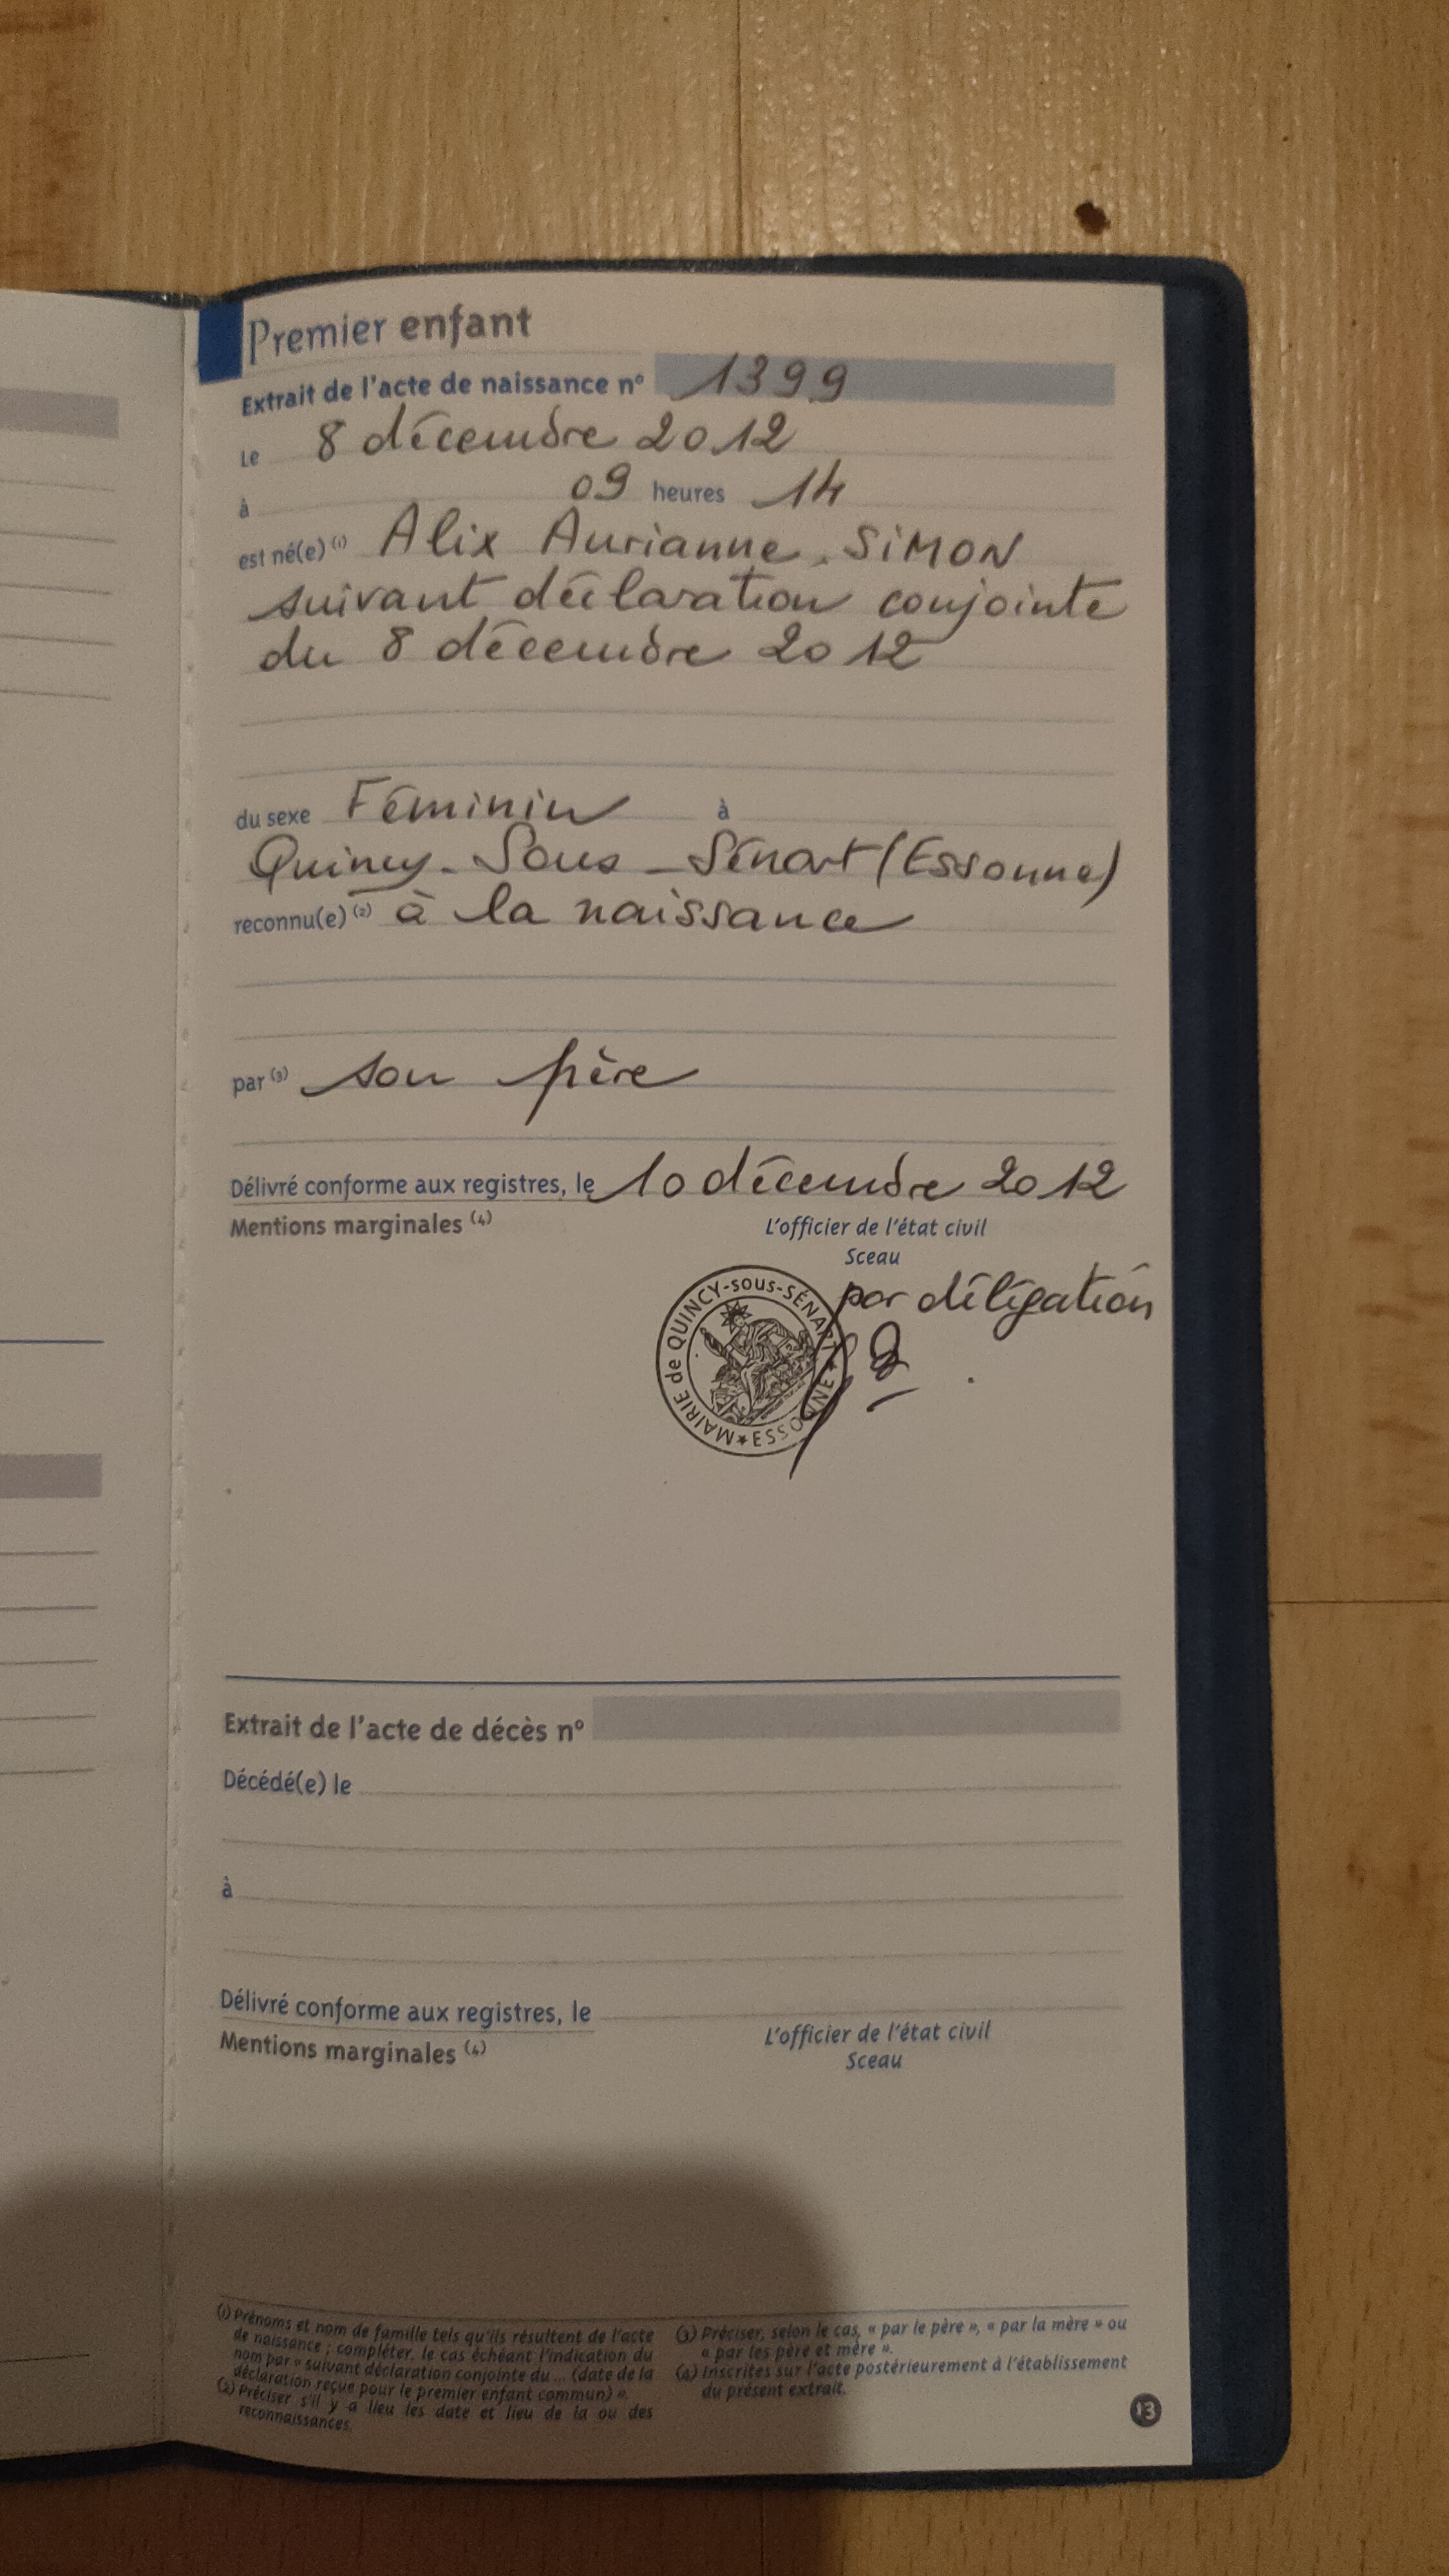 Premier enfant
Extrait de l'acte de naissance n° 1399
Le 8 décembre 2012
à 09 heures 14
est né(e) (1) Alix Aurianne SIMON
suivant déclaration conjointe
du 8 décembre 2012
du sexe Féminin à
Quincy-Sous-Sénart (Essonne)
reconnu(e) (2) à la naissance
par (3) son père
Délivré conforme aux registres, le 10 décembre 2012
Mentions marginales (4)
L'officier de l'état civil
Sceau
par délégation
MAIRIE de QUINCY-sous-SÉNART ★ ESSONNE ★
Extrait de l'acte de décès n°
Décédé(e) le
à
Délivré conforme aux registres, le
Mentions marginales (4)
L'officier de l'état civil
Sceau
(1) Prénoms et nom de famille tels qu'ils résultent de l'acte
de naissance ; compléter, le cas échéant l'indication du
nom par « suivant déclaration conjointe du ... (date de la
déclaration reçue pour le premier enfant commun) ».
(2) Préciser s'il y a lieu les date et lieu de la ou des
reconnaissances.
(3) Préciser, selon le cas, « par le père », « par la mère » ou
« par les père et mère ».
(4) Inscrites sur l'acte postérieurement à l'établissement
du présent extrait.
13